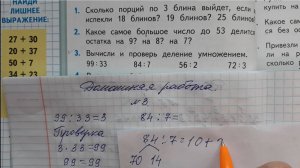 НАЙДИ
ЛИШНЕЕ
ВЫРАЖЕНИЕ:
27 + 30
20 + 37
50 + 7
34 + 23
1. Сколько порций по 3 блина выйдет, если
испекли 18 блинов? 19 блинов? 25 блинов
2. Какое самое большое число до 53 делится
остатка на 9? на 8? на 7?
3. Вычисли и проверь деление умножением.
99 : 33 84 : 7 56 : 2 72 : 3
купить на
Привезли
Домашняя работа
№3.
99 : 33 = 3
84 : 7 =
Проверка
3 · 33 = 99
99 = 99
84 : 7 = 10 +
70 14